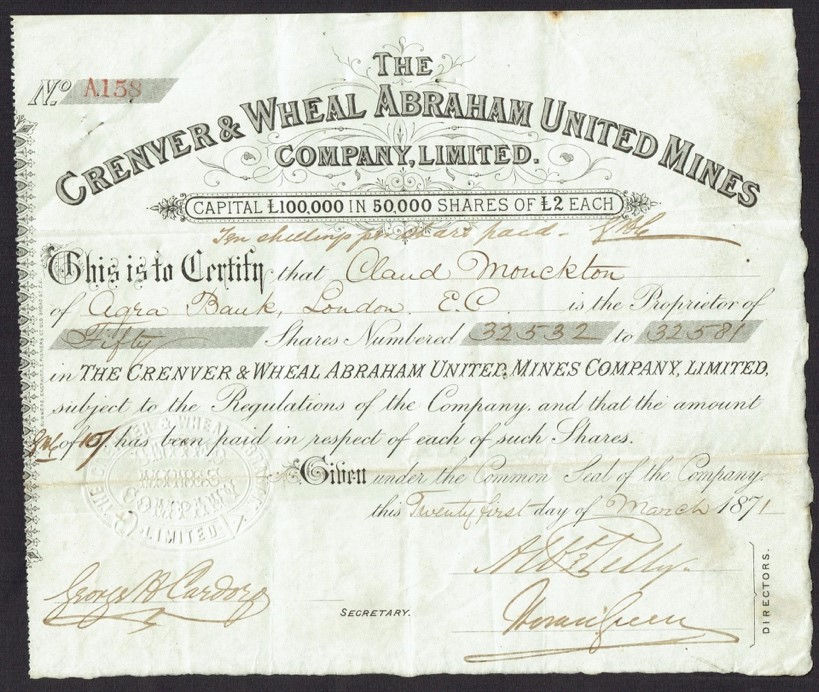 No. A158
THE
CRENVER & WHEAL ABRAHAM UNITED MINES
COMPANY, LIMITED.
CAPITAL £100,000 IN 50,000 SHARES OF £2 EACH
Ten shillings per share paid -
This is to Certify that Claud Monckton
of Agra Bank, London. E.C. is the Proprietor of
Fifty Shares Numbered 32532 to 32581
in THE CRENVER & WHEAL ABRAHAM UNITED MINES COMPANY, LIMITED,
subject to the Regulations of the Company, and that the amount
of 10/ has been paid in respect of each of such Shares.
Given under the Common Seal of the Company,
this Twenty first day of March 1871
THE CRENVER & WHEAL ABRAHAM
UNITED
MINES
COMPANY
LIMITED
George H Cardozo
SECRETARY.
DIRECTORS.